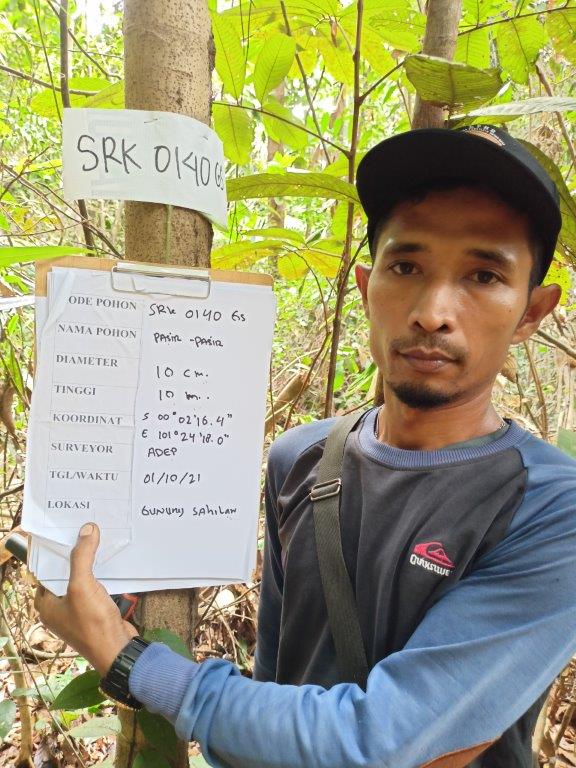 SRK 0140 GS
ODE POHON SRK 0140 GS
NAMA POHON PASIR - PASIR
DIAMETER 10 cm.
TINGGI 10 m.
KOORDINAT S 00° 02' 16.4"
E 101° 24' 18.0"
SURVEYOR ADEP
TGL/WAKTU 01/10/21
LOKASI GUNUNG SAHILAN
QUIKSILVER